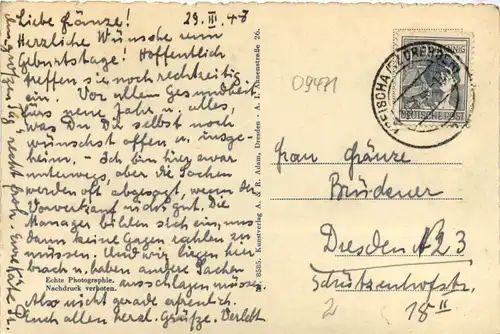 Liebe Gränze! 29. III. 48
Herzliche Wünsche zum
Geburtstage! Hoffentlich
treffen sie noch rechtzeitig
ein. Vor allem Gesundheit
fürs ganze Jahr u. alles,
was Du Dir selbst noch
wünschst offen u. insge-
heim. - Ich bin hier zwar
unterwegs, aber die Sachen
werden oft abgesagt, wenn der
Vorverkauf nicht gut. Die
Manager bilden sich ein, uns
dann keine Gagen zahlen zu
müssen. Und wir liegen hier
brach u. haben andere Sachen
ausschlagen müssen.
Also nicht gerade erfreulich.
Euch allen herzl. Grüße. Verlebt
den großen Tag recht froh. Eure Käte
Echte Photographie.
Nachdruck verboten.
Nr. 8585. Kunstverlag A. & R. Adam, Dresden - A. 1, Ahnenstraße 26.
09471
KREISCHA
DRESDEN
PFENNIG
DEUTSCHE POST
Frau Gränze
Brüdener
Dresden A 23
Schützenhofstr.
18 II
2